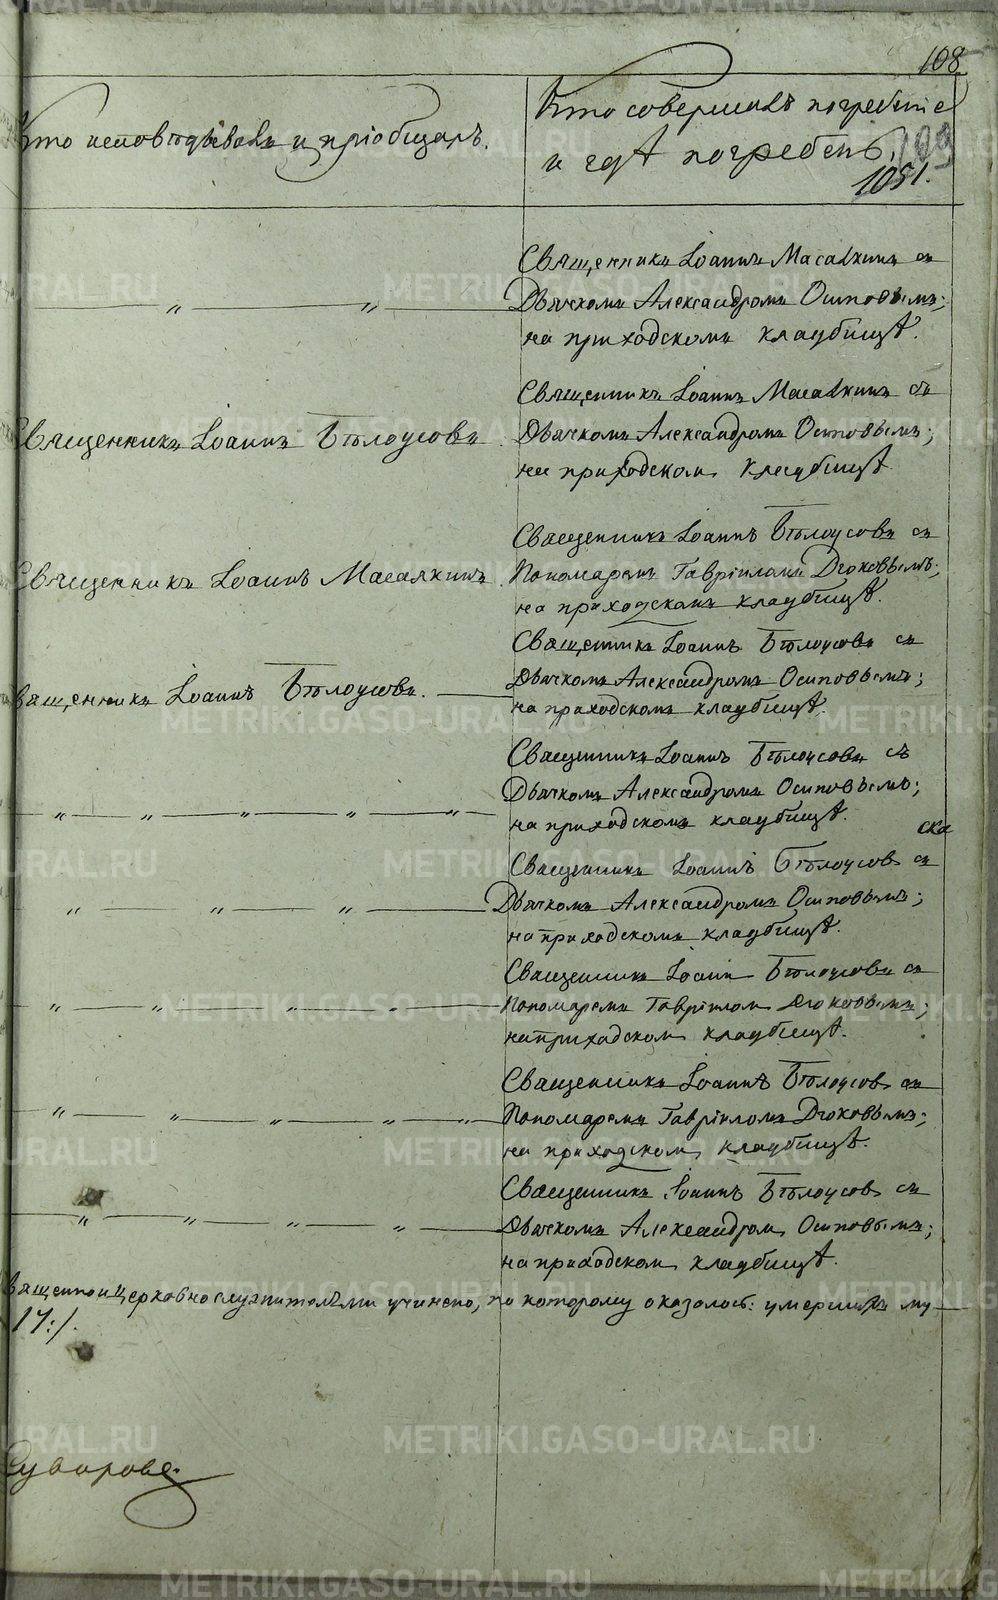 108
Кто исповѣдывалъ и пріобщалъ.
Кто совершалъ погребеніе
и гдѣ погребенъ.
109
1051.
Священникъ Іоаннъ Масалкинъ съ
Дьячкомъ Александромъ Осиповымъ;
на приходскомъ кладбищѣ.
Священникъ Іоаннъ Бѣлоусовъ
Священникъ Іоаннъ Масалкинъ съ
Дьячкомъ Александромъ Осиповымъ;
на приходскомъ кладбищѣ
Священникъ Іоаннъ Масалкинъ.
Священникъ Іоаннъ Бѣлоусовъ съ
Пономаремъ Гавріиломъ Дюковымъ;
на приходскомъ кладбищѣ.
вященникъ Іоаннъ Бѣлоусовъ.
Священникъ Іоаннъ Бѣлоусовъ съ
Дьячкомъ Александромъ Осиповымъ;
на приходскомъ кладбищѣ.
Священникъ Іоаннъ Бѣлоусовъ съ
Дьячкомъ Александромъ Осиповымъ;
на приходскомъ кладбищѣ.
ска
Священникъ Іоаннъ Бѣлоусовъ съ
Дьячкомъ Александромъ Осиповымъ;
на приходскомъ кладбищѣ.
Священникъ Іоаннъ Бѣлоусовъ съ
Пономаремъ Гавріиломъ Дюковымъ;
на приходскомъ кладбищѣ.
Священникъ Іоаннъ Бѣлоусовъ съ
Пономаремъ Гавріиломъ Дюковымъ;
на приходскомъ кладбищѣ.
Священникъ Іоаннъ Бѣлоусовъ съ
Дьячкомъ Александромъ Осиповымъ;
на приходскомъ кладбищѣ.
вященноицерковнослужителями учинено, по которому оказалось: умершихъ му-
17:/.
Суворовъ
METRIKI.GASO-URAL.RU